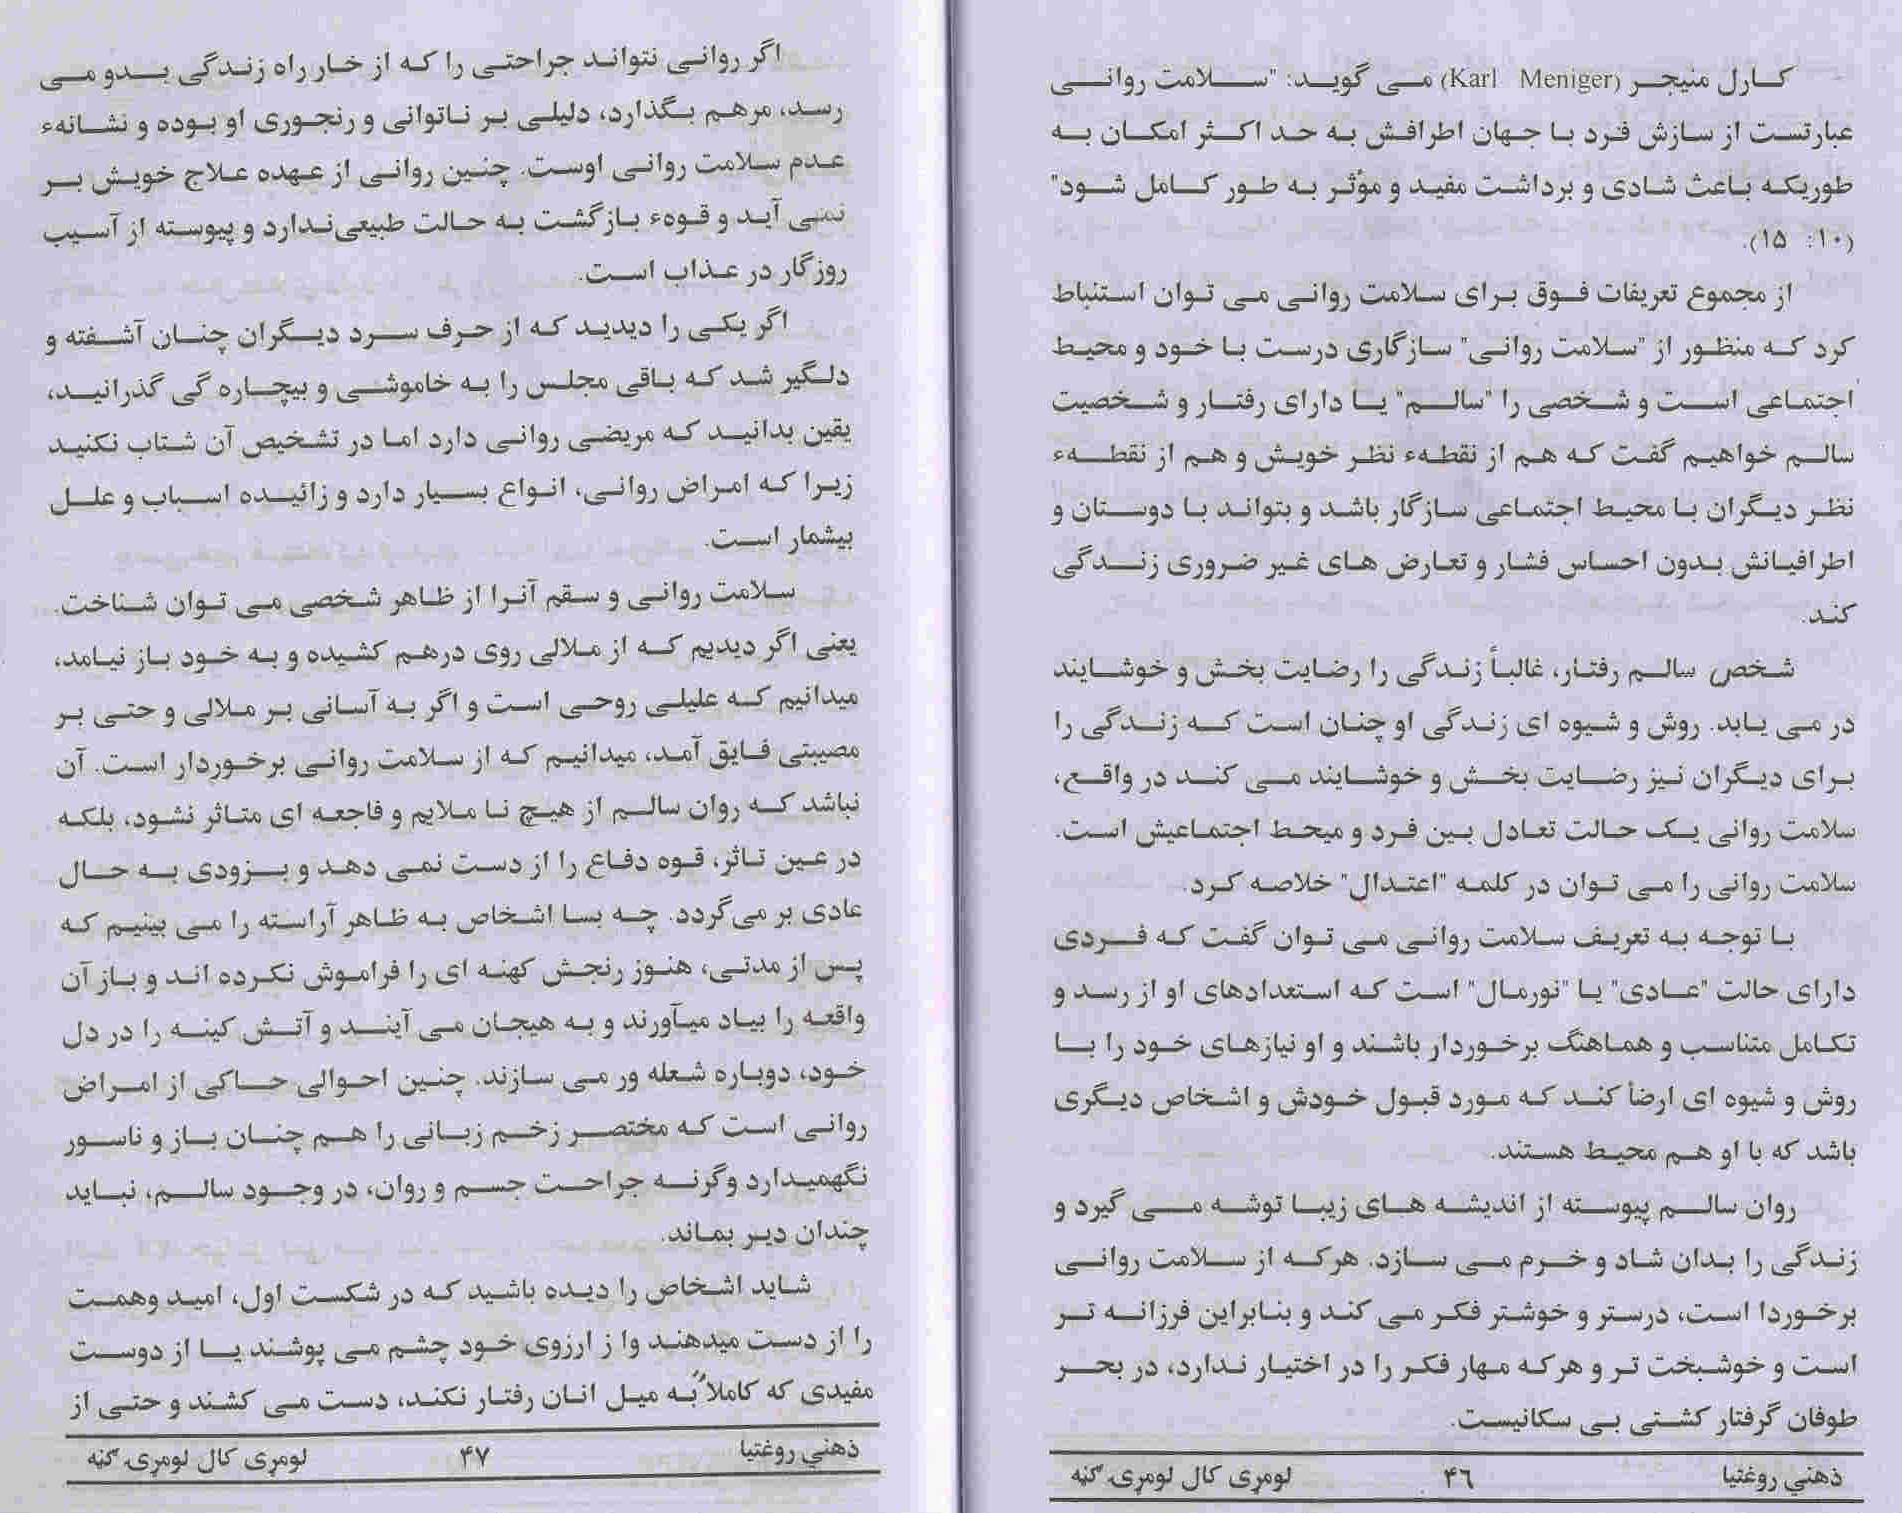 کارل منیجر (Karl Meniger) می گوید: "سلامت روانی
عبارتست از سازش فرد با جهان اطرافش به حد اکثر امکان به
طوریکه باعث شادی و برداشت مفید و مؤثر به طور کامل شود"
(۱۰: ۱۵).
از مجموع تعریفات فوق برای سلامت روانی می توان استنباط
کرد که منظور از "سلامت روانی" سازگاری درست با خود و محیط
اجتماعی است و شخصی را "سالم" یا دارای رفتار و شخصیت
سالم خواهیم گفت که هم از نقطهء نظر خویش و هم از نقطهء
نظر دیگران با محیط اجتماعی سازگار باشد و بتواند با دوستان و
اطرافیانش بدون احساس فشار و تعارض های غیر ضروری زندگی
کند.
شخص سالم رفتار، غالباً زندگی را رضایت بخش و خوشایند
در می یابد. روش و شیوه ای زندگی او چنان است که زندگی را
برای دیگران نیز رضایت بخش و خوشایند می کند در واقع،
سلامت روانی یک حالت تعادل بین فرد و میحط اجتماعیش است.
سلامت روانی را می توان در کلمه "اعتدال" خلاصه کرد.
با توجه به تعریف سلامت روانی می توان گفت که فردی
دارای حالت "عادی" یا "نورمال" است که استعدادهای او از رسد و
تکامل متناسب و هماهنگ برخوردار باشند و او نیازهای خود را با
روش و شیوه ای ارضأ کند که مورد قبول خودش و اشخاص دیگری
باشد که با او هم محیط هستند.
روان سالم پیوسته از اندیشه های زیبا توشه می گیرد و
زندگی را بدان شاد و خرم می سازد. هرکه از سلامت روانی
برخوردا است، درستر و خوشتر فکر می کند و بنابراین فرزانه تر
است و خوشبخت تر و هرکه مهار فکر را در اختیار ندارد، در بحر
طوفان گرفتار کشتی بی سکانیست.
ذهني روغتیا ۴۶ لومړی کال لومړۍ ګڼه
اگر روانی نتواند جراحتی را که از خار راه زندگی بدو می
رسد، مرهم بگذارد، دلیلی بر ناتوانی و رنجوری او بوده و نشانهء
عدم سلامت روانی اوست. چنین روانی از عهده علاج خویش بر
نمی آید و قوهء بازگشت به حالت طبیعی‌ندارد و پیوسته از آسیب
روزگار در عذاب است.
اگر یکی را دیدید که از حرف سرد دیگران چنان آشفته و
دلگیر شد که باقی مجلس را به خاموشی و بیچاره گی گذرانید،
یقین بدانید که مریضی روانی دارد اما در تشخیص آن شتاب نکنید
زیرا که امراض روانی، انواع بسیار دارد و زائیده اسباب و علل
بیشمار است.
سلامت روانی و سقم آنرا از ظاهر شخصی می توان شناخت.
یعنی اگر دیدیم که از ملالی روی درهم کشیده و به خود باز نیامد،
میدانیم که علیلی روحی است و اگر به آسانی بر ملالی و حتی بر
مصیبتی فایق آمد، میدانیم که از سلامت روانی برخوردار است. آن
نباشد که روان سالم از هیچ نا ملایم و فاجعه ای متاثر نشود، بلکه
در عین تاثر، قوه دفاع را از دست نمی دهد و بزودی به حال
عادی بر می‌گردد. چه بسا اشخاص به ظاهر آراسته را می بینیم که
پس از مدتی، هنوز رنجش کهنه ای را فراموش نکرده اند و باز آن
واقعه را بیاد میآورند و به هیجان می آیند و آتش کینه را در دل
خود، دوباره شعله ور می سازند. چنین احوالی حاکی از امراض
روانی است که مختصر زخم زبانی را هم چنان باز و ناسور
نگهمیدارد وگرنه جراحت جسم و روان، در وجود سالم، نباید
چندان دیر بماند.
شاید اشخاص را دیده باشید که در شکست اول، امید وهمت
را از دست میدهند وا ز ارزوی خود چشم می پوشند یا از دوست
مفیدی که کاملاً به میل انان رفتار نکند، دست می کشند و حتی از
ذهني روغتیا ۴۷ لومړی کال لومړۍ ګڼه